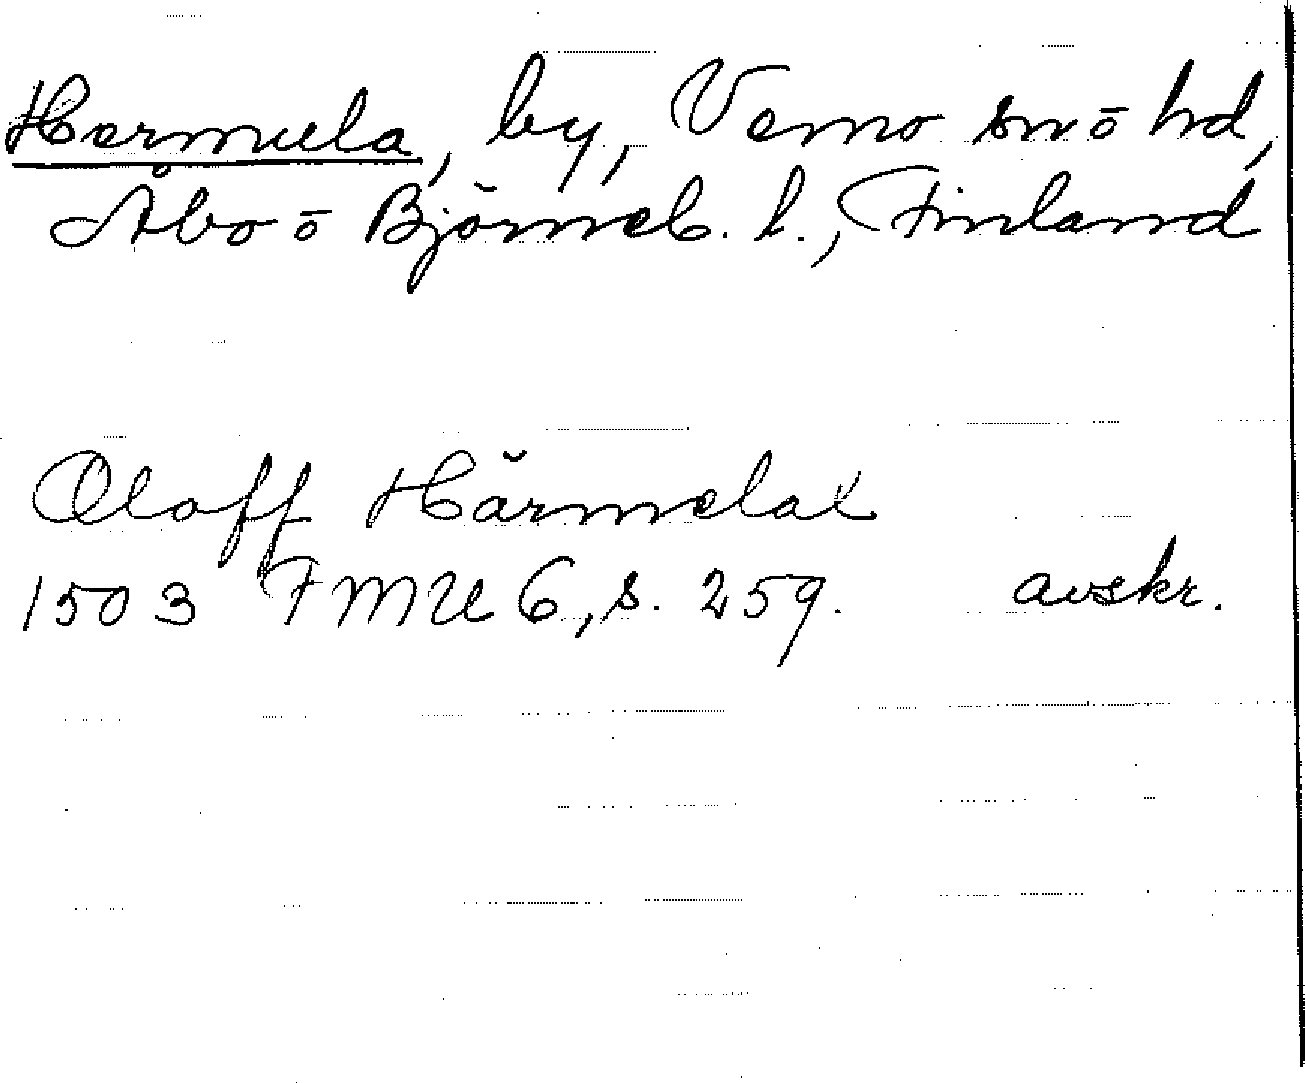 Hermula, by, Vemo sn ō hd,
Åbo ō Björneb. l., Finland
Oloff Härmelax
1503 FMU 6, s. 259. avskr.